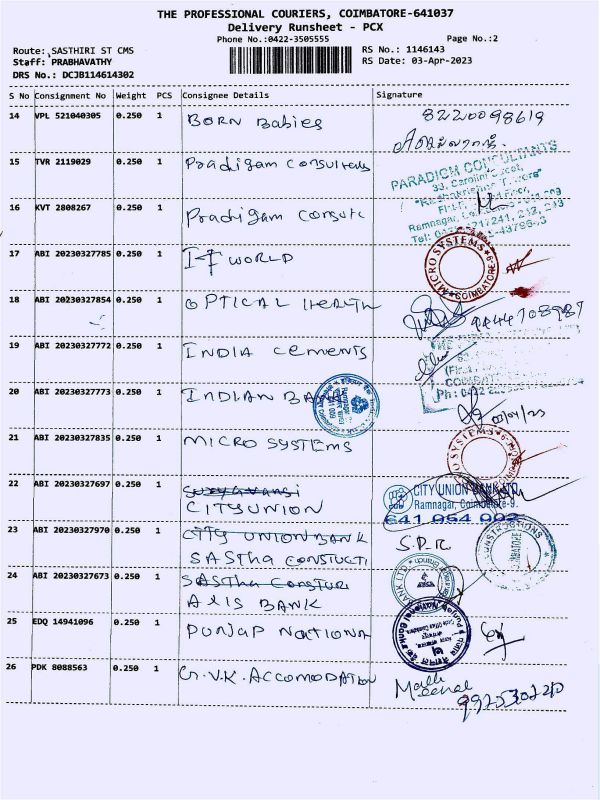 THE PROFESSIONAL COURIERS, COIMBATORE-641037
Delivery Runsheet - PCX
Phone No.:0422-3505555 Page No.:2
Route: SASTHIRI ST CMS RS No.: 1146143
Staff: PRABHAVATHY RS Date: 03-Apr-2023
DRS No.: DCJB114614302
S No Consignment No Weight PCS Consignee Details Signature
14 VPL 521040305 0.250 1 BORN Babies 8220098619
15 TVR 2119029 0.250 1 Pradigam Consultents
PARADIGM CONSULTANTS
16 KVT 2808267 0.250 1 Pradigam Consute
17 ABI 20230327785 0.250 1 IT WORLD MICRO SYSTEMS COIMBATORE-9
18 ABI 20230327854 0.250 1 OPTICAL HEALTH 9844708987
19 ABI 20230327772 0.250 1 INDIA cements
20 ABI 20230327773 0.250 1 INDIAN BANK
21 ABI 20230327835 0.250 1 MICRO SYSTEMS
22 ABI 20230327697 0.250 1 Suryavansi
CITYUNION
CITY UNION BANK LTD
Ramnagar, Coimbatore-9.
641 054 002
23 ABI 20230327970 0.250 1 CITY UNION BANK
SASTha CONSTUCTI S.P.R.
CONSTRUCTIONS COIMBATORE
24 ABI 20230327673 0.250 1 SASTha Constur
AXIS BANK
25 EDQ 14941096 0.250 1 PUNJAP NATIONA
26 PDK 8088563 0.250 1 G.V.K. ACCOMODATION